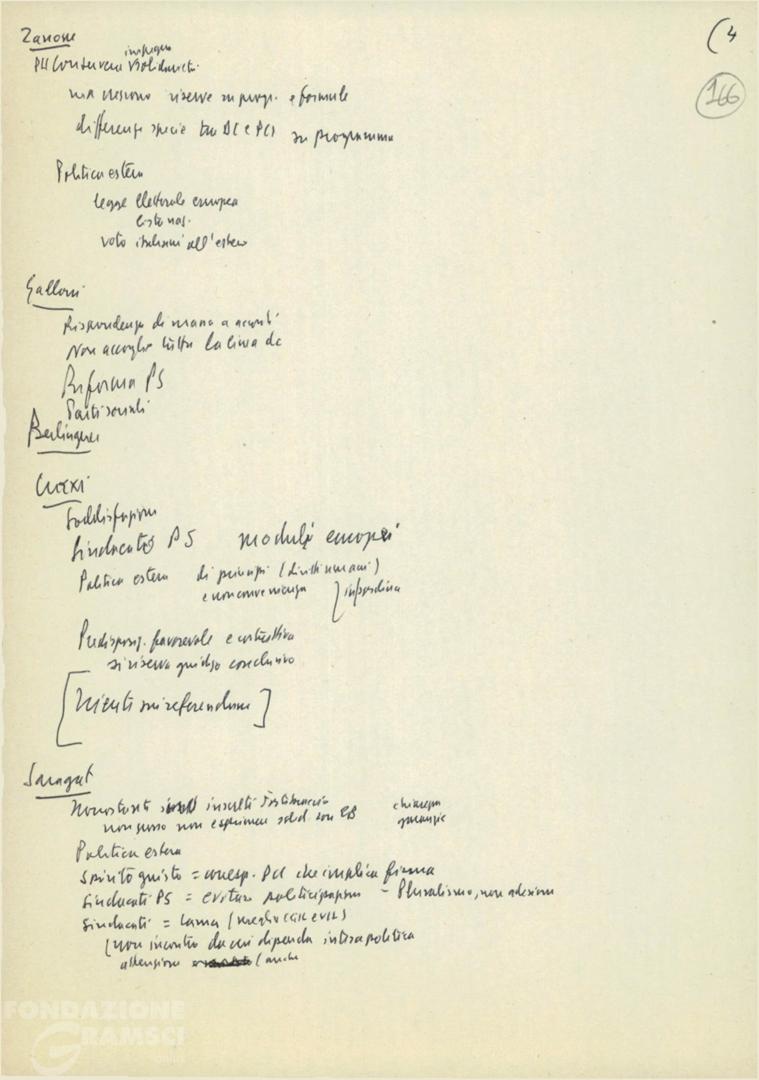 (4
166
Zanone
impegno
PLI conserverà solidarietà
ma riserve su progr. e formule
differenze specie tra DC e PCI su programma
Politica estera
legge elettorale europea
liste naz.
voto italiani all'estero
Galloni
Rispondenza di massa a accordi
Non accoglie tutta la linea dc
Riforma PS
Patti sociali
Berlinguer
Craxi
Soddisfazione
Sindacato PS moduli europei
Politica estera di principi (diritti umani)
e non convenienza
Predispos. favorevole e costruttiva
si riserva giudizio conclusivo
[Niente sui referendum]
Saragat
Nonostante insulti
non posso non esprimere solid. con EB
chiarezza
garanzie
Politica estera
Spirito giusto = PCI che implica firma
Sindacati PS = evitare politicizzazione - Pluralismo, non adesione
Sindacati = Lama (meglio CGIL e UIL)
(non incontro da cui dipenda intesa politica
attenzione (anche
FONDAZIONE
GRAMSCI